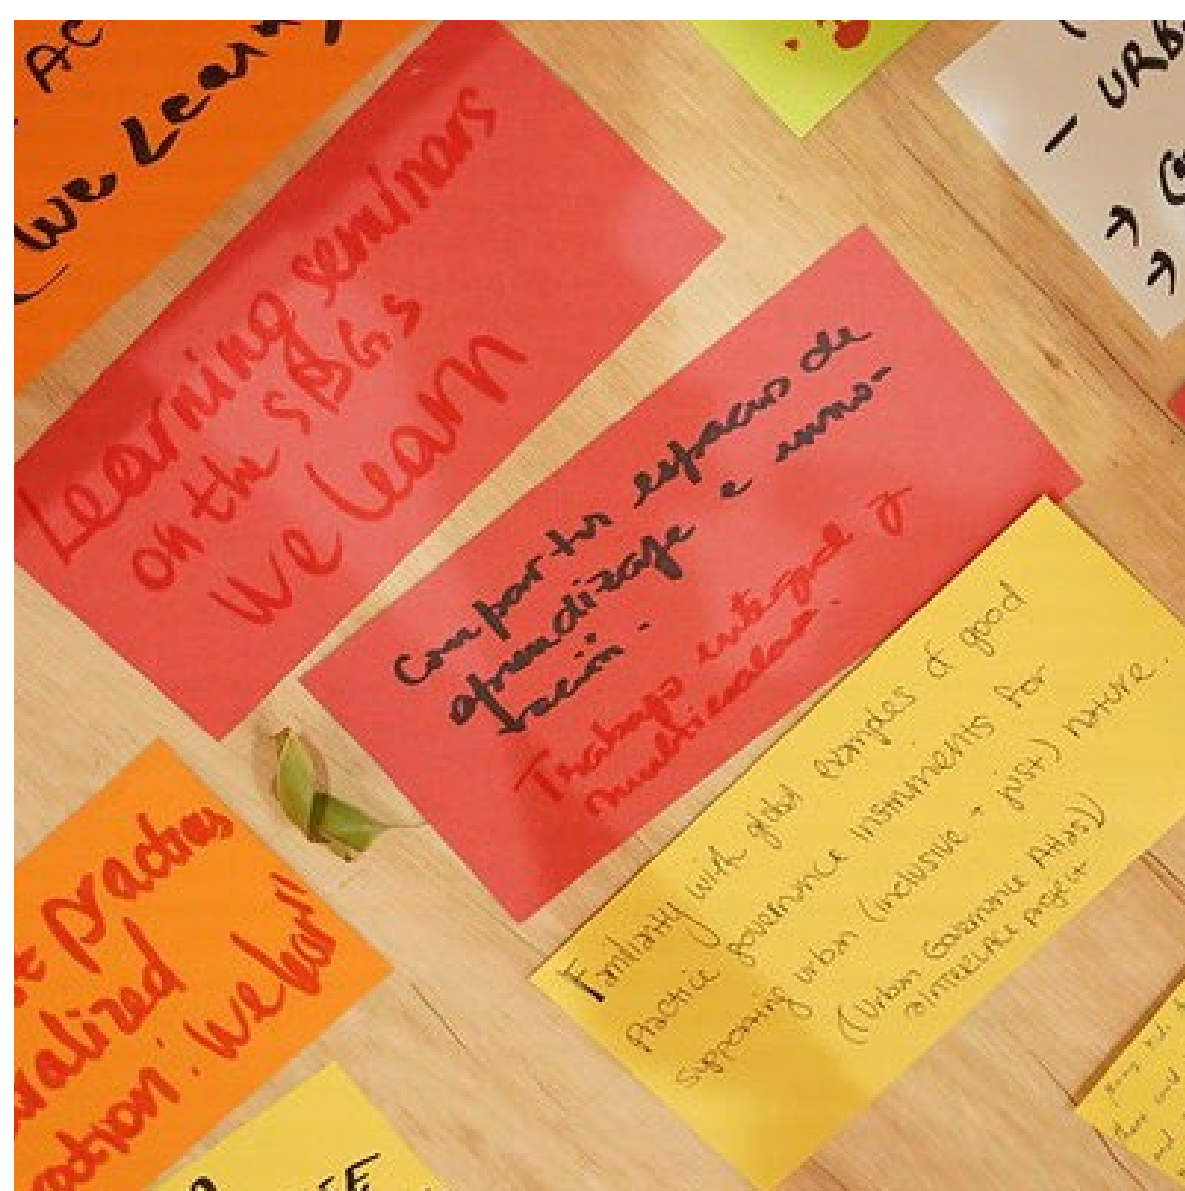 AC
(We Learn
Learning seminars
on the SDGs
We Learn
- URB
→
→
Compartir espacios de
aprendizaje e inno-
vación.
Trabajo integral y
multiescalar.
Familiarity with global examples of good
practice governance instruments for
supporting urban (inclusive + just) nature.
(Urban Governance Atlas))
@INTERLACE project
practices
ralized
action. We learn